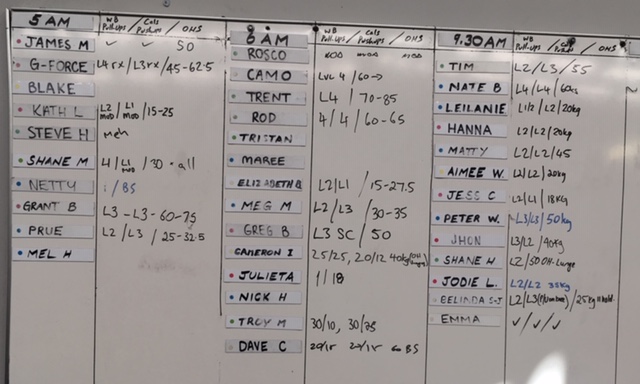 5 AM WB Pull-ups / Cals Pushups / OHS
JAMES M ✓ ✓ 50
G-FORCE L4rx / L3rx / 45-62.5
BLAKE
KATH L L2 mod / L1 mod / 15-25
STEVE H meh
SHANE M 4 / L1 mod / 30 - all
NETTY / BS
GRANT B L3 - L3 - 60-75
PRUE L2 / L3 / 25-32.5
MEL H
6 AM WB Pull-ups / Cals Pushups / OHS
ROSCO
CAMO LVL 4 / 60→
TRENT L4 / 70-85
ROD 4 / 4 / 60-65
TRISTAN
MAREE
ELIZABETH B L2/L1 / 15-27.5
MEG M L2 / L3 / 30-35
GREG B L3 SC / 50
CAMERON I 25/25, 20/12 40kg
JULIETA 1 / 18
NICK H
TROY M 30/10, 30/75
DAVE C BS
9.30AM WB Pull-ups / OHS
TIM L2 / L3 / 55
NATE B L4 / L4 / 60kg
LEILANIE L1/2 / L2 / 20kg
HANNA L2 / L2 / 20kg
MATTY L2 / L2 / 45
AIMEE W. L2 / L2 / 20kg
JESS C L2 / L1 / 18KG
PETER W. L3/L3 / 50kg
JHON L3/L2 / 40kg
SHANE H L2 / 50 OH-Lunge
JODIE L. L2/L2 35kg
BELINDA S-J L2/L3 / 25kg
EMMA ✓ / ✓ / ✓